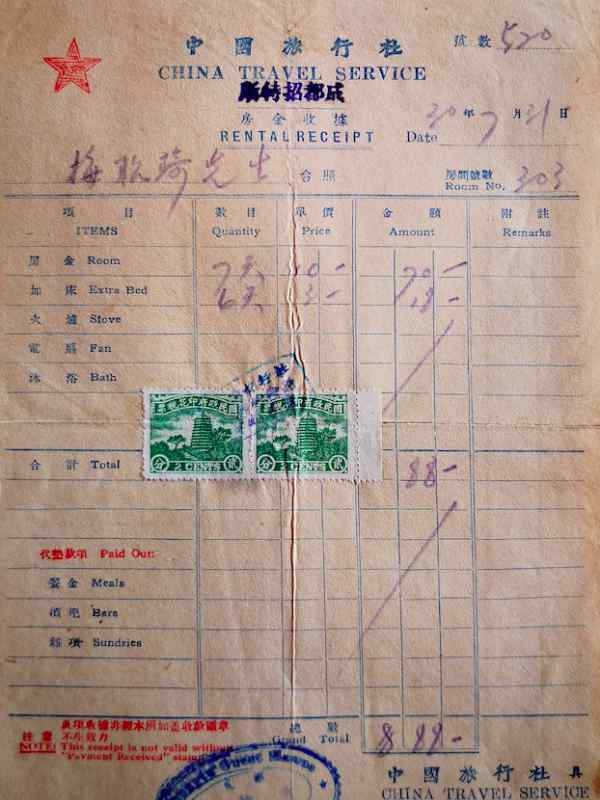 中國旅行社 號數 520
CHINA TRAVEL SERVICE
成都招待所
房金收據
RENTAL RECEIPT Date 30年7月31日
先生 台照 房間號數 Room No. 303
項目 數目 單價 金額 附註
ITEMS Quantity Price Amount Remarks
房金 Room 7天 10- 70-
加床 Extra Bed 6天 3- 18-
火爐 Stove
電扇 Fan
沐浴 Bath
國民政府印花稅票 國民政府印花稅票
分 2 CENTS 貳 分 2 CENTS 貳
合計 Total 88-
代墊款項 Paid Out:
餐金 Meals
酒吧 Bars
雜項 Sundries
此項收據非經本所加蓋收款圖章
注意 不生效力
NOTE: This receipt is not valid without
"Payment Received" stamp
總數
Grand Total
Guest House
中國旅行社具
CHINA TRAVEL SERVICE